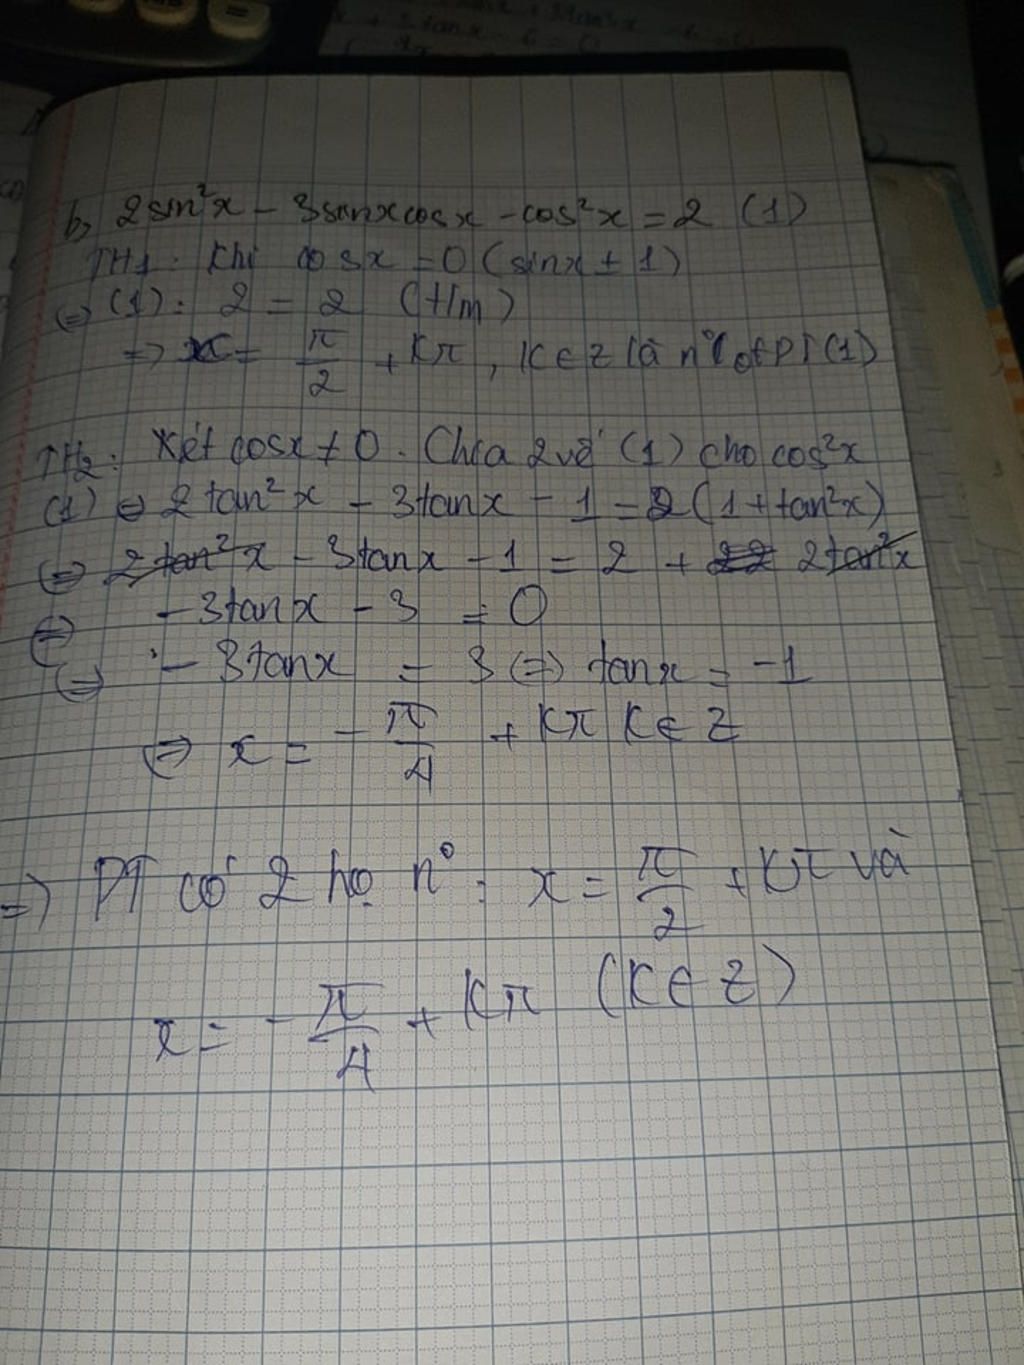 b, 2sin²x - 3sinxcosx - cos²x = 2 (1)
TH1: Khi cosx = 0 (sinx ± 1)
⇔ (1): 2 = 2 (t/m)
=> x = π/2 + Kπ, K∈Z là n° of PT(1)
TH2: Xét cosx ≠ 0. Chia 2 vế (1) cho cos²x
(1) ⇔ 2tan²x - 3tanx - 1 = 2(1+tan²x)
⇔ 2tan²x - 3tanx - 1 = 2 + 2tan²x
⇔ -3tanx - 3 = 0
⇔ -3tanx = 3 ⇔ tanx = -1
⇔ x = -π/4 + Kπ K∈Z
=> PT có 2 họ n°: x = π/2 + Kπ và
x = -π/4 + Kπ (K∈Z)